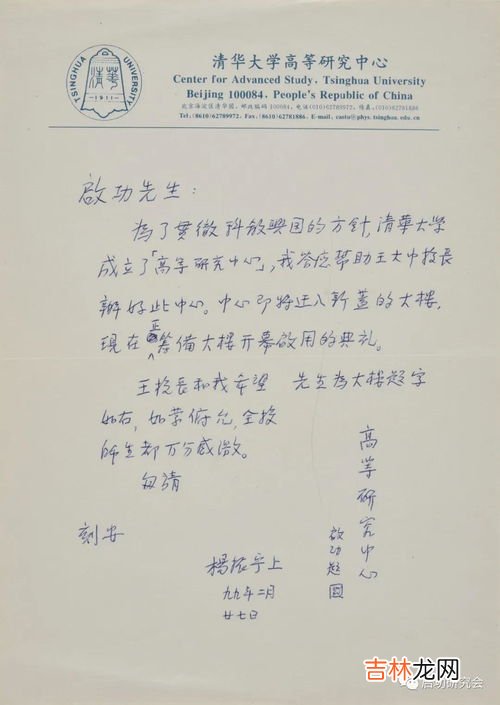 TSINGHUA UNIVERSITY
清華
·1911·
清华大学高等研究中心
Center for Advanced Study, Tsinghua University
Beijing 100084, People's Republic of China
北京海淀区清华园, 邮政编码 100084, 电话(010)62789972, 传真:(010)62781886
Tel.(8610)62789972, Fax:(8610)62781886, E-mail, castu@phys.tsinghua.edu.cn
啟功先生:
為了贯徹科教興国的方針,清華大学
成立了「高等研究中心」,我答应帮助王大中校長
辦好此中心。中心即将迁入新蓋的大樓,
現在正籌備大楼开幕啟用的典礼。
王校長和我希望 先生為大楼題字
如右,如蒙俯允,全校
师生都万分感激。
請
刻安
高等研究中心
啟功題
楊振宁上
九九年二月
廿七日
吉林龙网
启功研究会